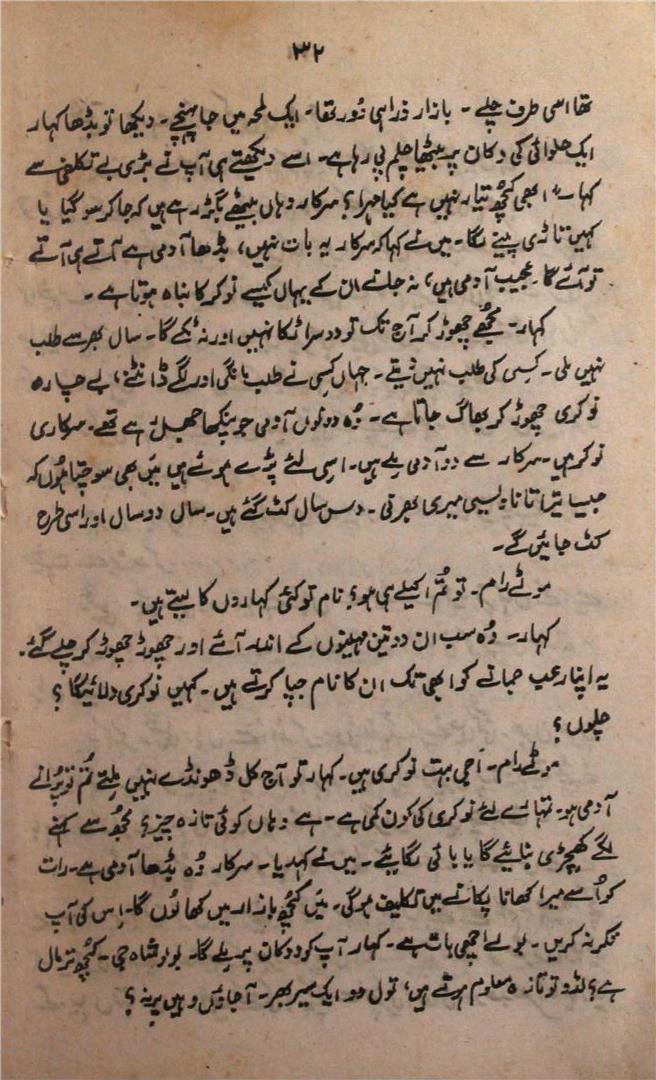 ۳۲
تھا اسی طرف چلے۔ بازار ذرا ہی دُور تھا۔ ایک لمحہ میں جا پہنچے۔ دیکھا تو بڈھا کہار
ایک حلوائی کی دکان پر بیٹھا چلم پی رہا ہے۔ اسے دیکھتے ہی آپ نے بڑی بے تکلفی سے
کہا۔" ابھی کچُھ تیار نہیں ہے کیا مہرا؟ سرکار وہاں بیٹھے بگڑ رہے ہیں کہ جا کر سو گیا یا
کہیں تاڑی پینے لگا۔ میں نے کہا کہ سرکار یہ بات نہیں، بڈھا آدمی ہے آتے ہی آتے
تو آئے گا۔ عجیب آدمی ہیں، نہ جانے ان کے یہاں کیسے نوکر کا نباہ ہوتا ہے۔
کہار۔ مجُھے چھوڑ کر آج تک تو دوسرا ٹکا نہیں اور نہ ٹکے گا۔ سال بھر سے طلب
نہیں ملی۔ کسِی کی طلب نہیں دیتے۔ جہاں کسِی نے طلب مانگی اور لگے ڈانٹنے، بے چارہ
نوکری چھوڑ کر بھاگ جاتا ہے۔ وُہ دونوں آدمی جو پنکھا جھیل رہے تھے۔ سرکاری
نوکر ہیں۔ سرکار سے دو آدمی ملے ہیں۔ اسی لئے پڑے ہوئے ہیں مَیں بھی سوچتا ہُوں کہ
جیسا تیرا تانا ویسی میری بھرتی۔ دس سال کٹ گئے ہیں۔ سال دو سال اور اسی طرح
کٹ جائیں گے۔
موٹے رام۔ تو تُم اکیلے ہی ہو؟ نام تو کئی کہاروں کا لیتے ہیں۔
کہار۔ وُہ سب ان دو تین مہینوں کے اندر آئے اور چھوڑ چھوڑ کر چلے گئے۔
یہ اپنا رعب جمانے کو ابھی تک ان کا نام جپا کرتے ہیں۔ کہیں نوکری دلائیگا؟
چلوں؟
موٹے رام۔ اَجی بہت نوکری ہیں۔ کہار تو آج کل ڈھونڈے نہیں ملِتے تُم تو پُرانے
آدمی ہو۔ تمہارے لئے نوکری کی کون کمی ہے۔ ہے وہاں کوئی تازہ چیز؟ مجُھ سے کہنے
لگے کھچڑی بنائیے گا یا باٹی لگائیے۔ میں نے کہدیا۔ سرکار وُہ بڈھا آدمی ہے۔ رات
کو اُسے میرا کھانا پکانے میں تکلیف ہوگی۔ میَں کچُھ بازار میں کھا لُوں گا۔ اِس کی آپ
فکر نہ کریں۔ بولے اچھی بات ہے۔ کہار آپ کو دوکان پر ملے گا۔ بولو شاہ جی۔ کچُھ تر مال
ہے؟ لڈو تو تازہ معلوم ہوتے ہیں، تول دو ایک سیر بھر۔ آ جاؤں وہیں پر نہ؟